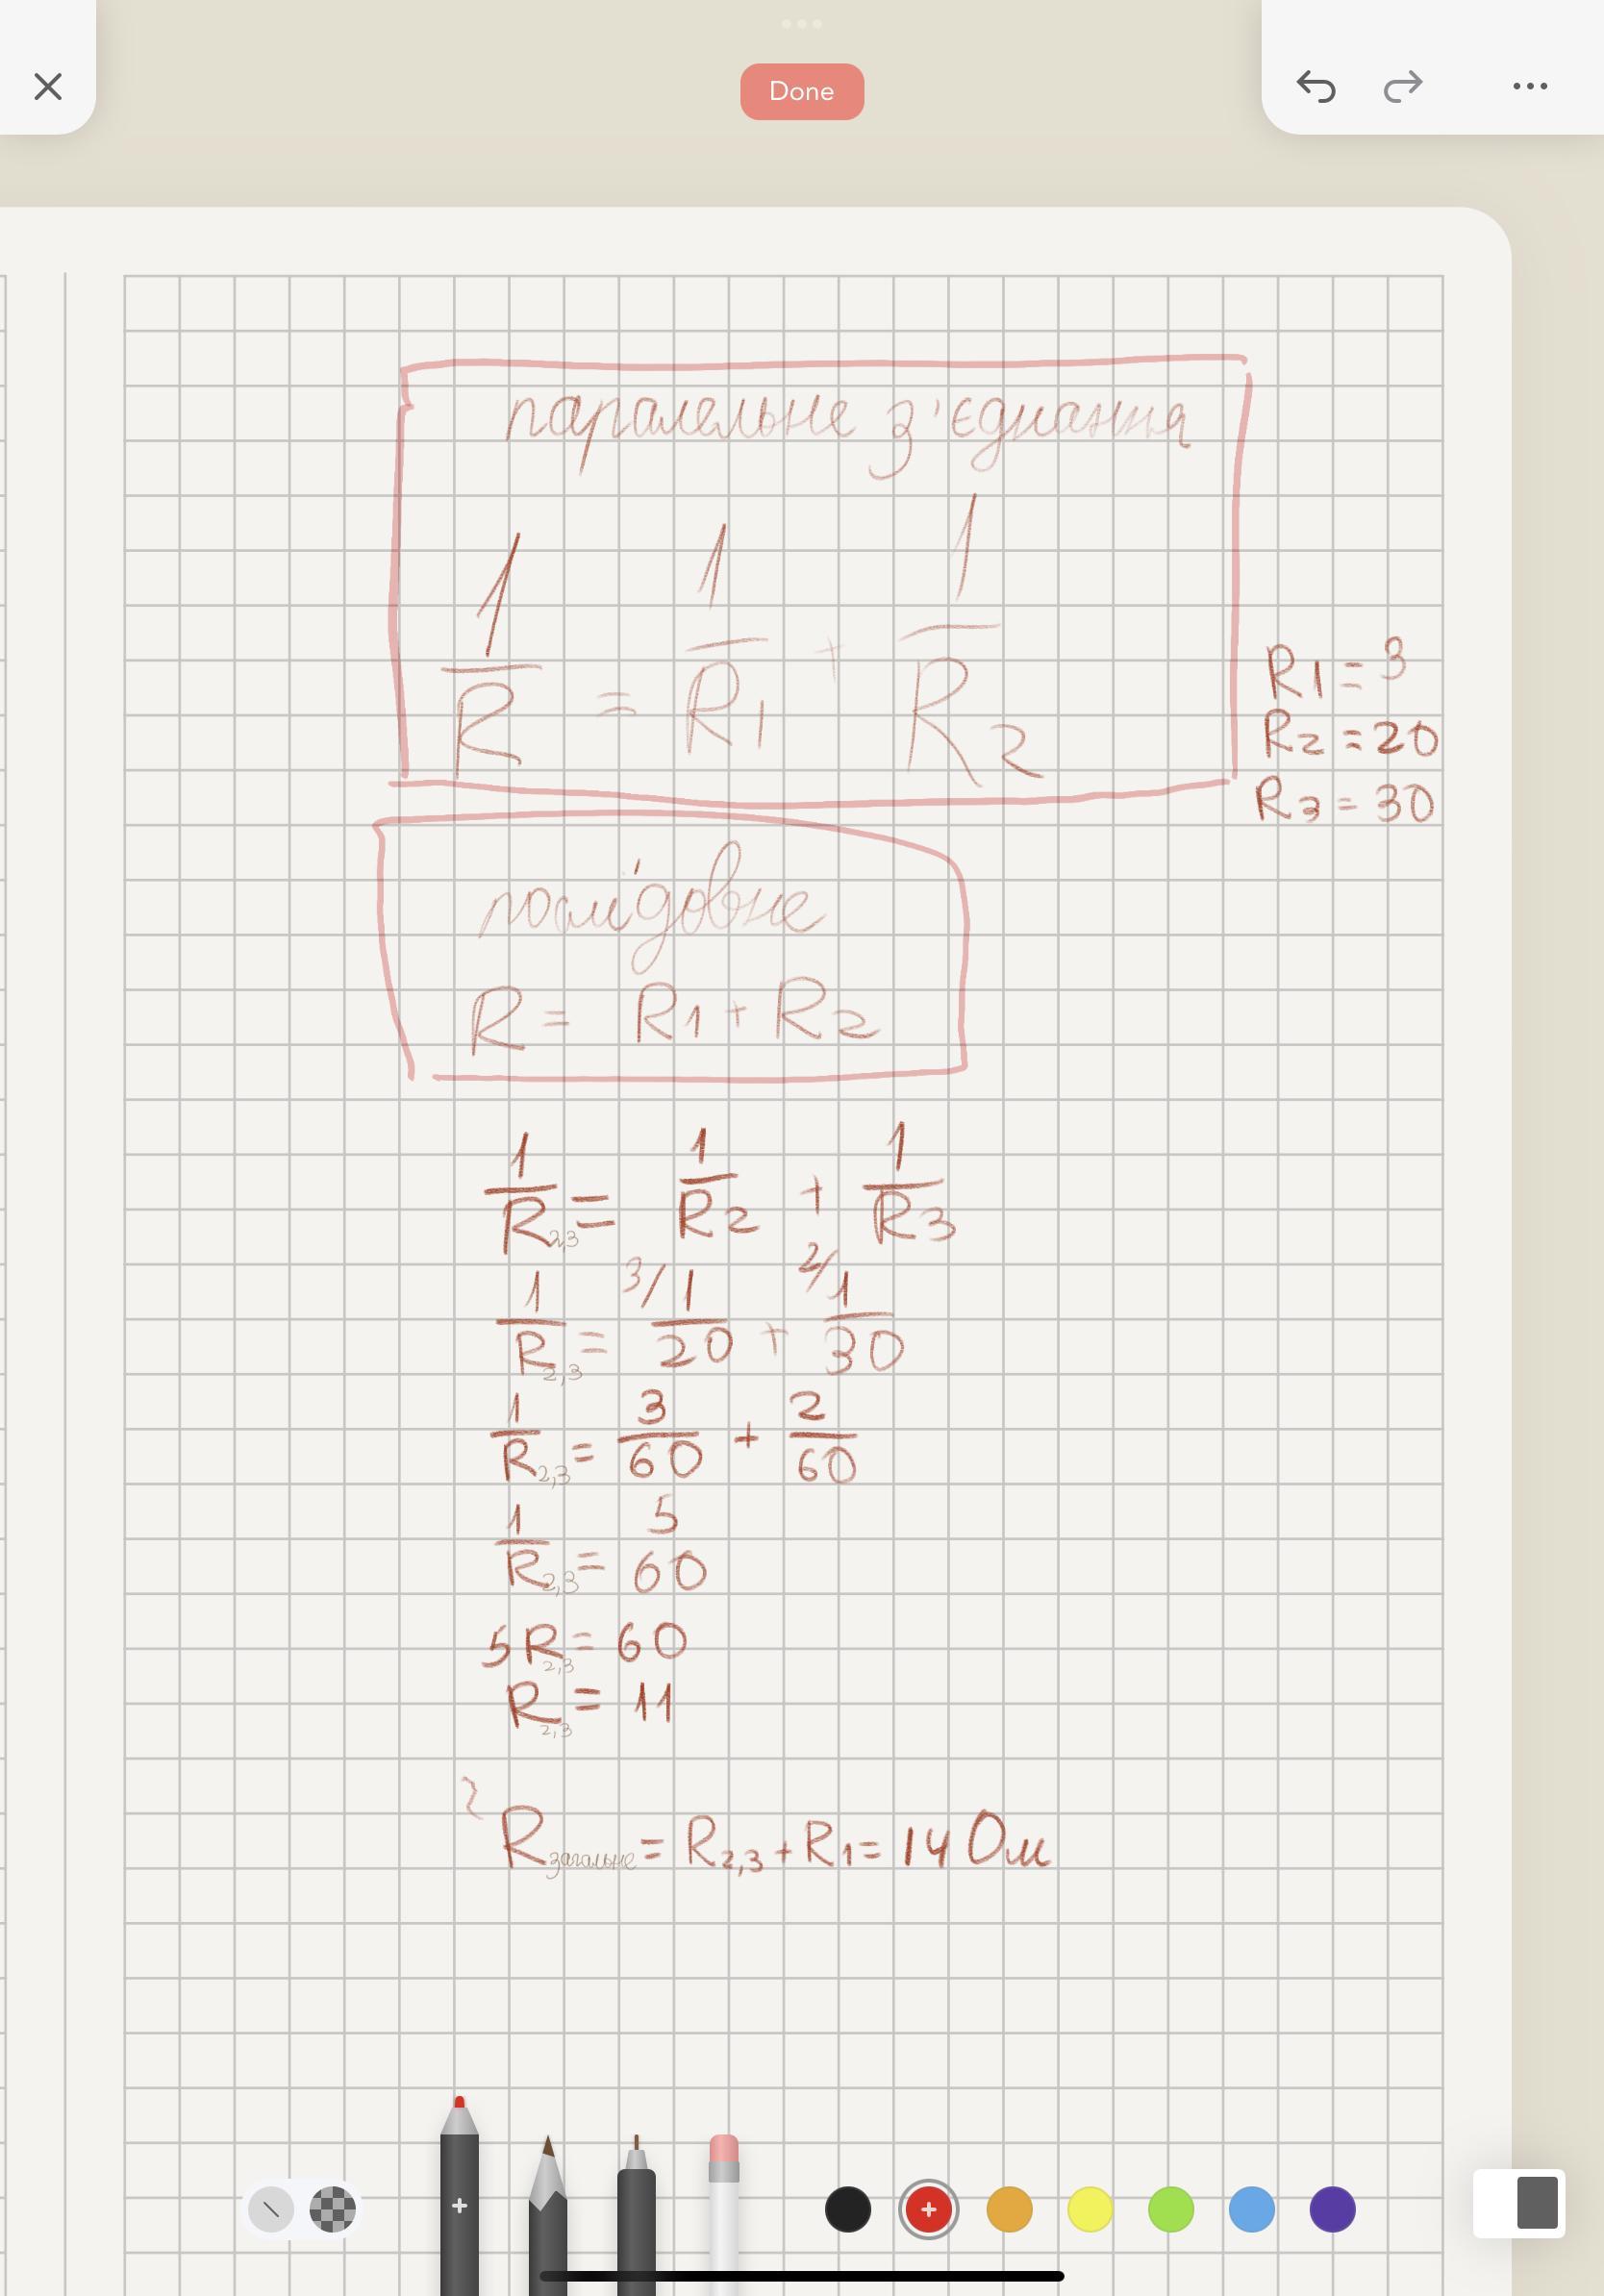 Done
паралельне з'єднання
1/R = 1/R1 + 1/R2
R1 = 3
R2 = 20
R3 = 30
послідовне
R = R1 + R2
1/R2,3 = 1/R2 + 1/R3
1/R2,3 = 3/ 1/20 + 2/ 1/30
1/R2,3 = 3/60 + 2/60
1/R2,3 = 5 60
5R2,3 = 60
R2,3 = 11
Rзагальне = R2,3 + R1 = 14 Ом